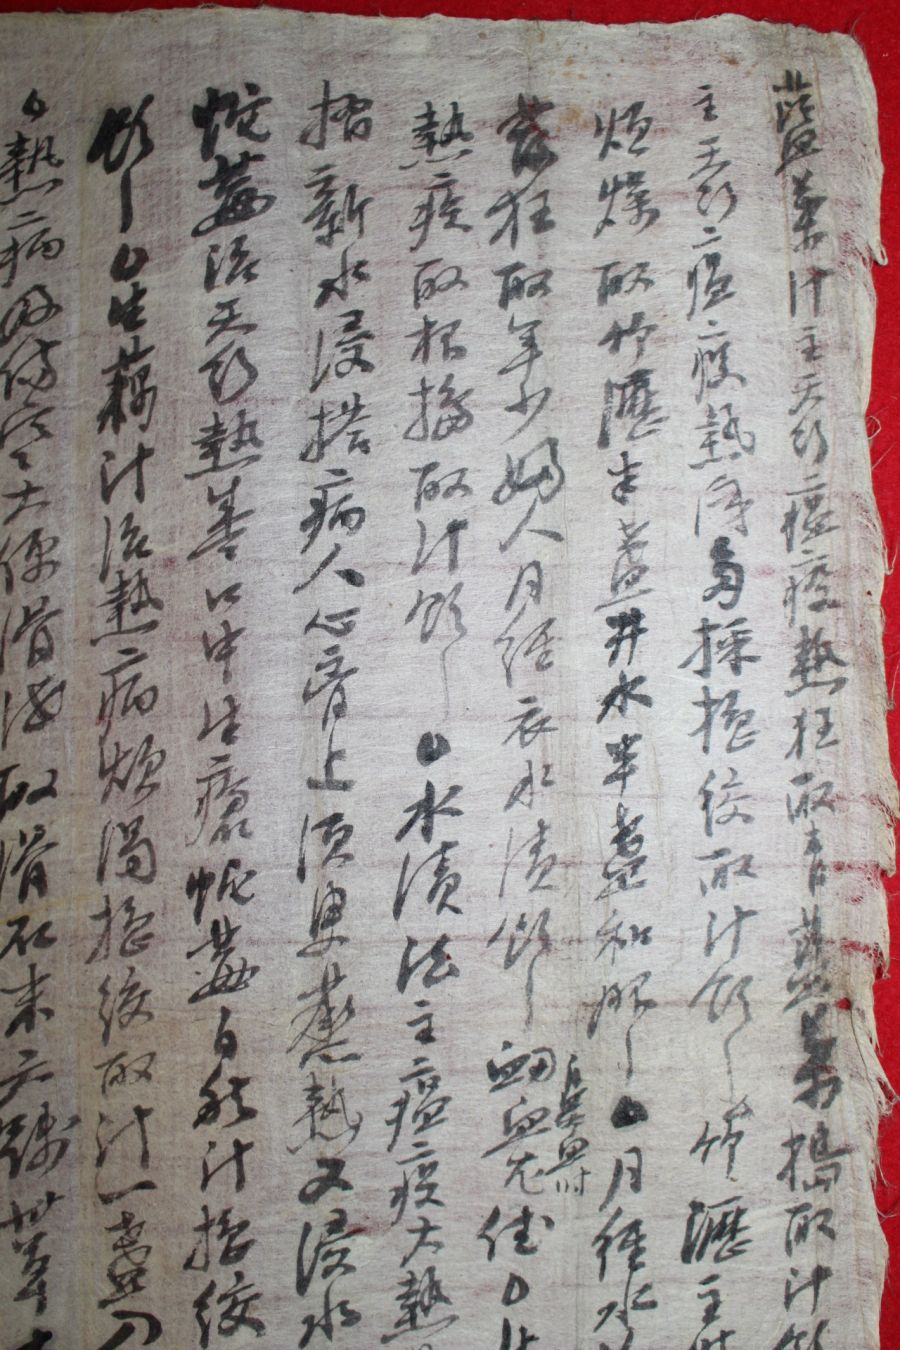 藍葉汁主天行瘟疫熱狂取青藍葉搗取汁飮
主天行瘟疫熱 採搗絞取汁飮 竹瀝主時
煩燥取竹瀝半盞井水半盞和服 月經水
發狂取年少婦人月經衣水漬飮 衄血
熱疾取根搗取汁飮 水漬法主瘟疫大熱
摺新水浸搭病人心胸上須臾蒸熱又浸水
蛇莓治天行熱 口中生瘡蛇莓自然汁搗絞
飮 生藕汁治熱病煩渴搗絞取汁一盞
熱病及傷寒大便滑 取滑石末六錢甘草